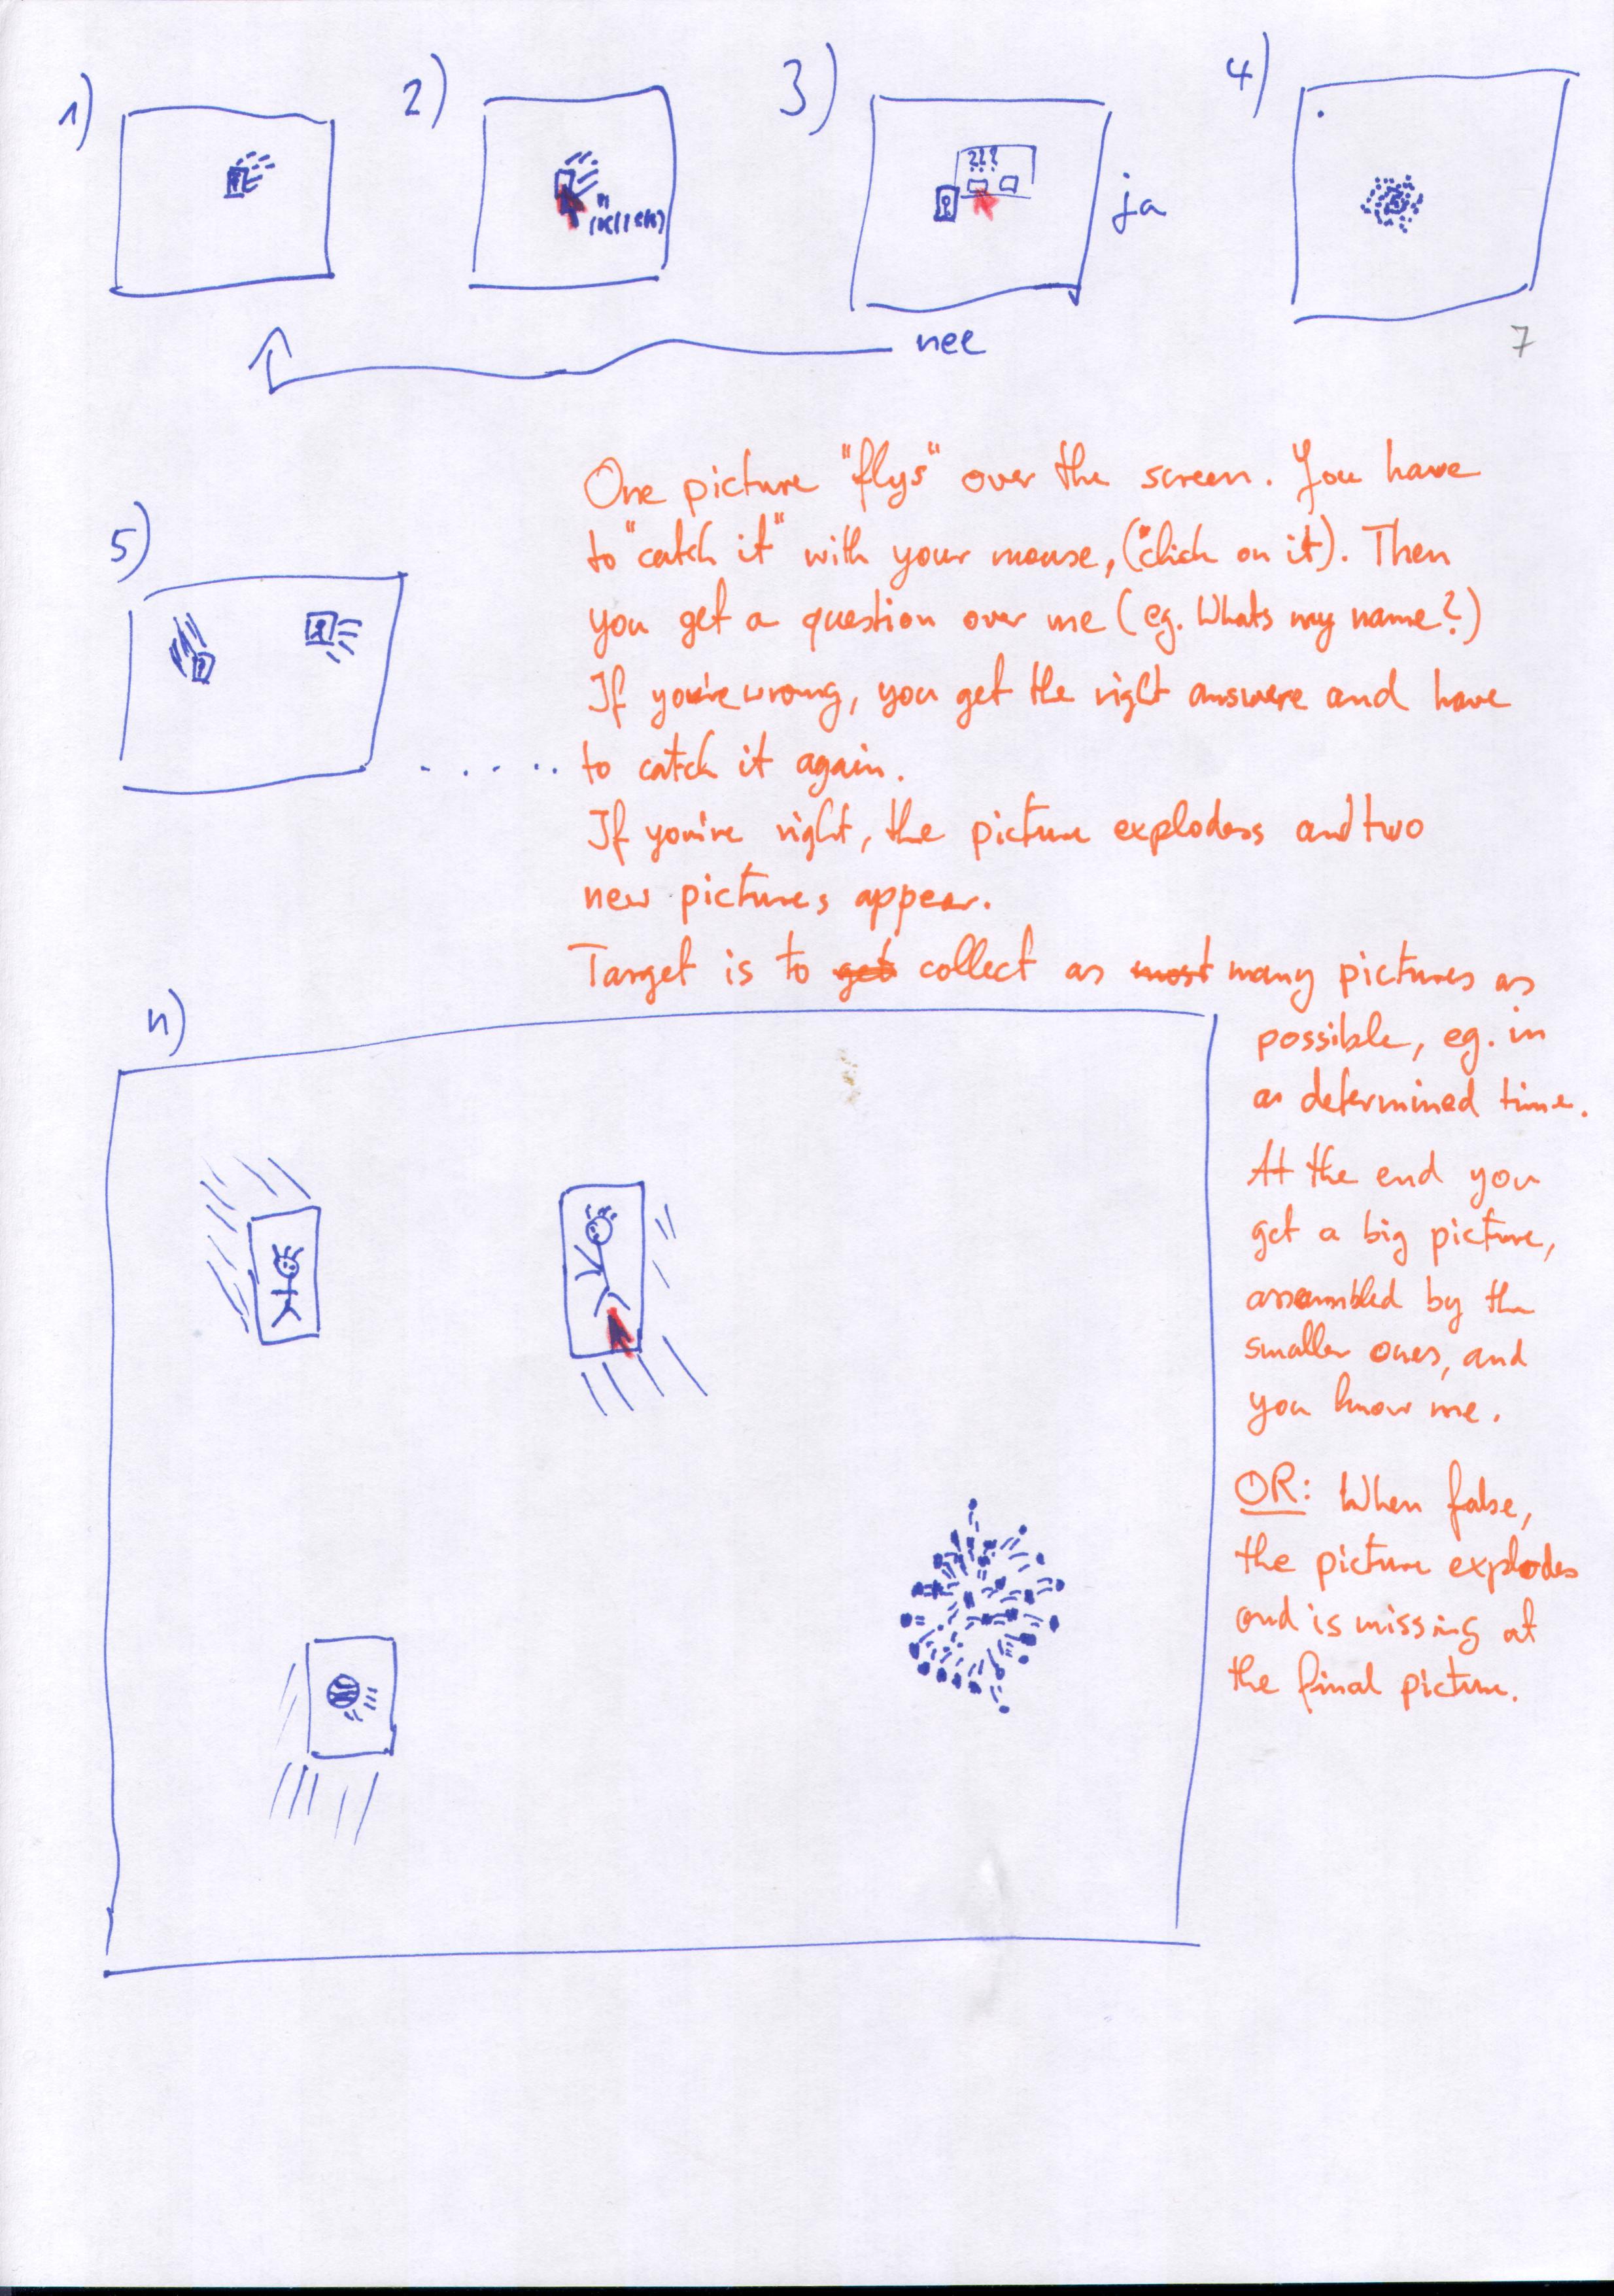 1)
2)
3)
4)
"klick"
???
ja
nee
7
5)
One picture "flys" over the screen. You have
to "catch it" with your mouse, ("click on it). Then
you get a question over me (eg. Whats my name?)
If you're wrong, you get the right answere and have
to catch it again.
If you're right, the picture explodess and two
new pictures appear.
Target is to get collect as most many pictures as
possible, eg. in
a determined time.
At the end you
get a big picture,
assembled by the
smaller ones, and
you know me.
OR: When false,
the picture explodes
and is missing at
the final picture.
n)